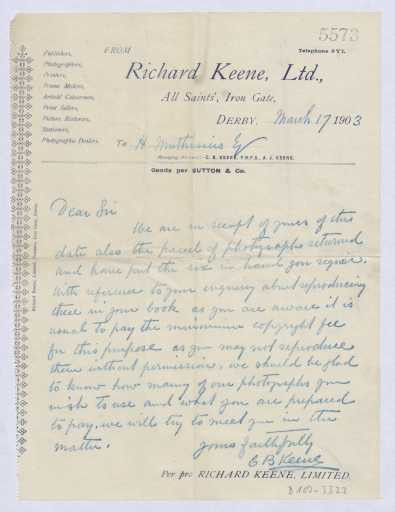 5573
FROM
Telephone 971.
Publishers,
Photographers,
Printers,
Frame Makers,
Artists' Colourmen,
Print Sellers,
Picture Restorers,
Stationers,
Photographic Dealers.
Richard Keene, Ltd.,
All Saints', Iron Gate,
DERBY, March 17 1903
To H. Muthesius Esq
Managing Directors: C. B. KEENE, F.R.P.S., A. J. KEENE.
Goods per SUTTON & Co.
Dear Sir
We are in receipt of yours of this
date also the parcel of photographs returned
and have put the six in hand you require.
With reference to your enquiry about reproducing
these in your book as you are aware it is
usual to pay the minimum copyright fee
for this purpose as you may not reproduce
them without permission, we should be glad
to know how many of our photographs you
wish to use and what you are prepared
to pay, we will try to meet you in the
matter.
Yours faithfully
C B Keene
Per pro RICHARD KEENE, LIMITED.